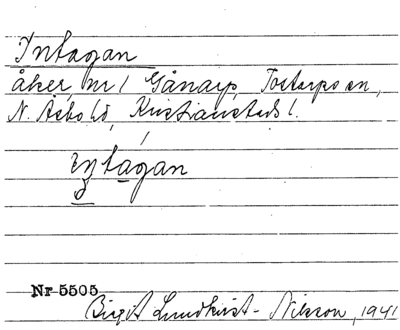 Intagan
åker, nr 1 Gånarp, Tostarps sn,
N. Åsbo hd, Kristianstads l.
Nr 5505
Birgit Lundkvist-Nilsson, 1941